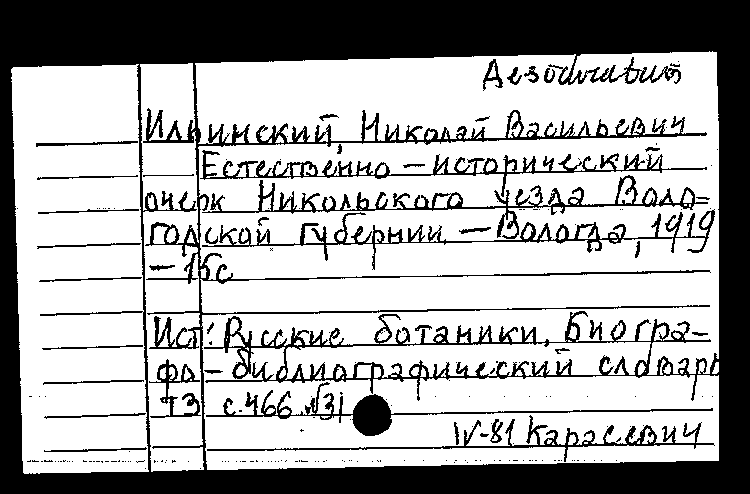 Ильинский, Николай Васильевич
Естественно – исторический
очерк Никольского уезда Воло=
годской губернии. – Вологда, 1919
– 15с
Ист: Русские ботаники. Биогра–
фо – библиографический словарь
т3 с.466 №31
IV-81 Карасевич